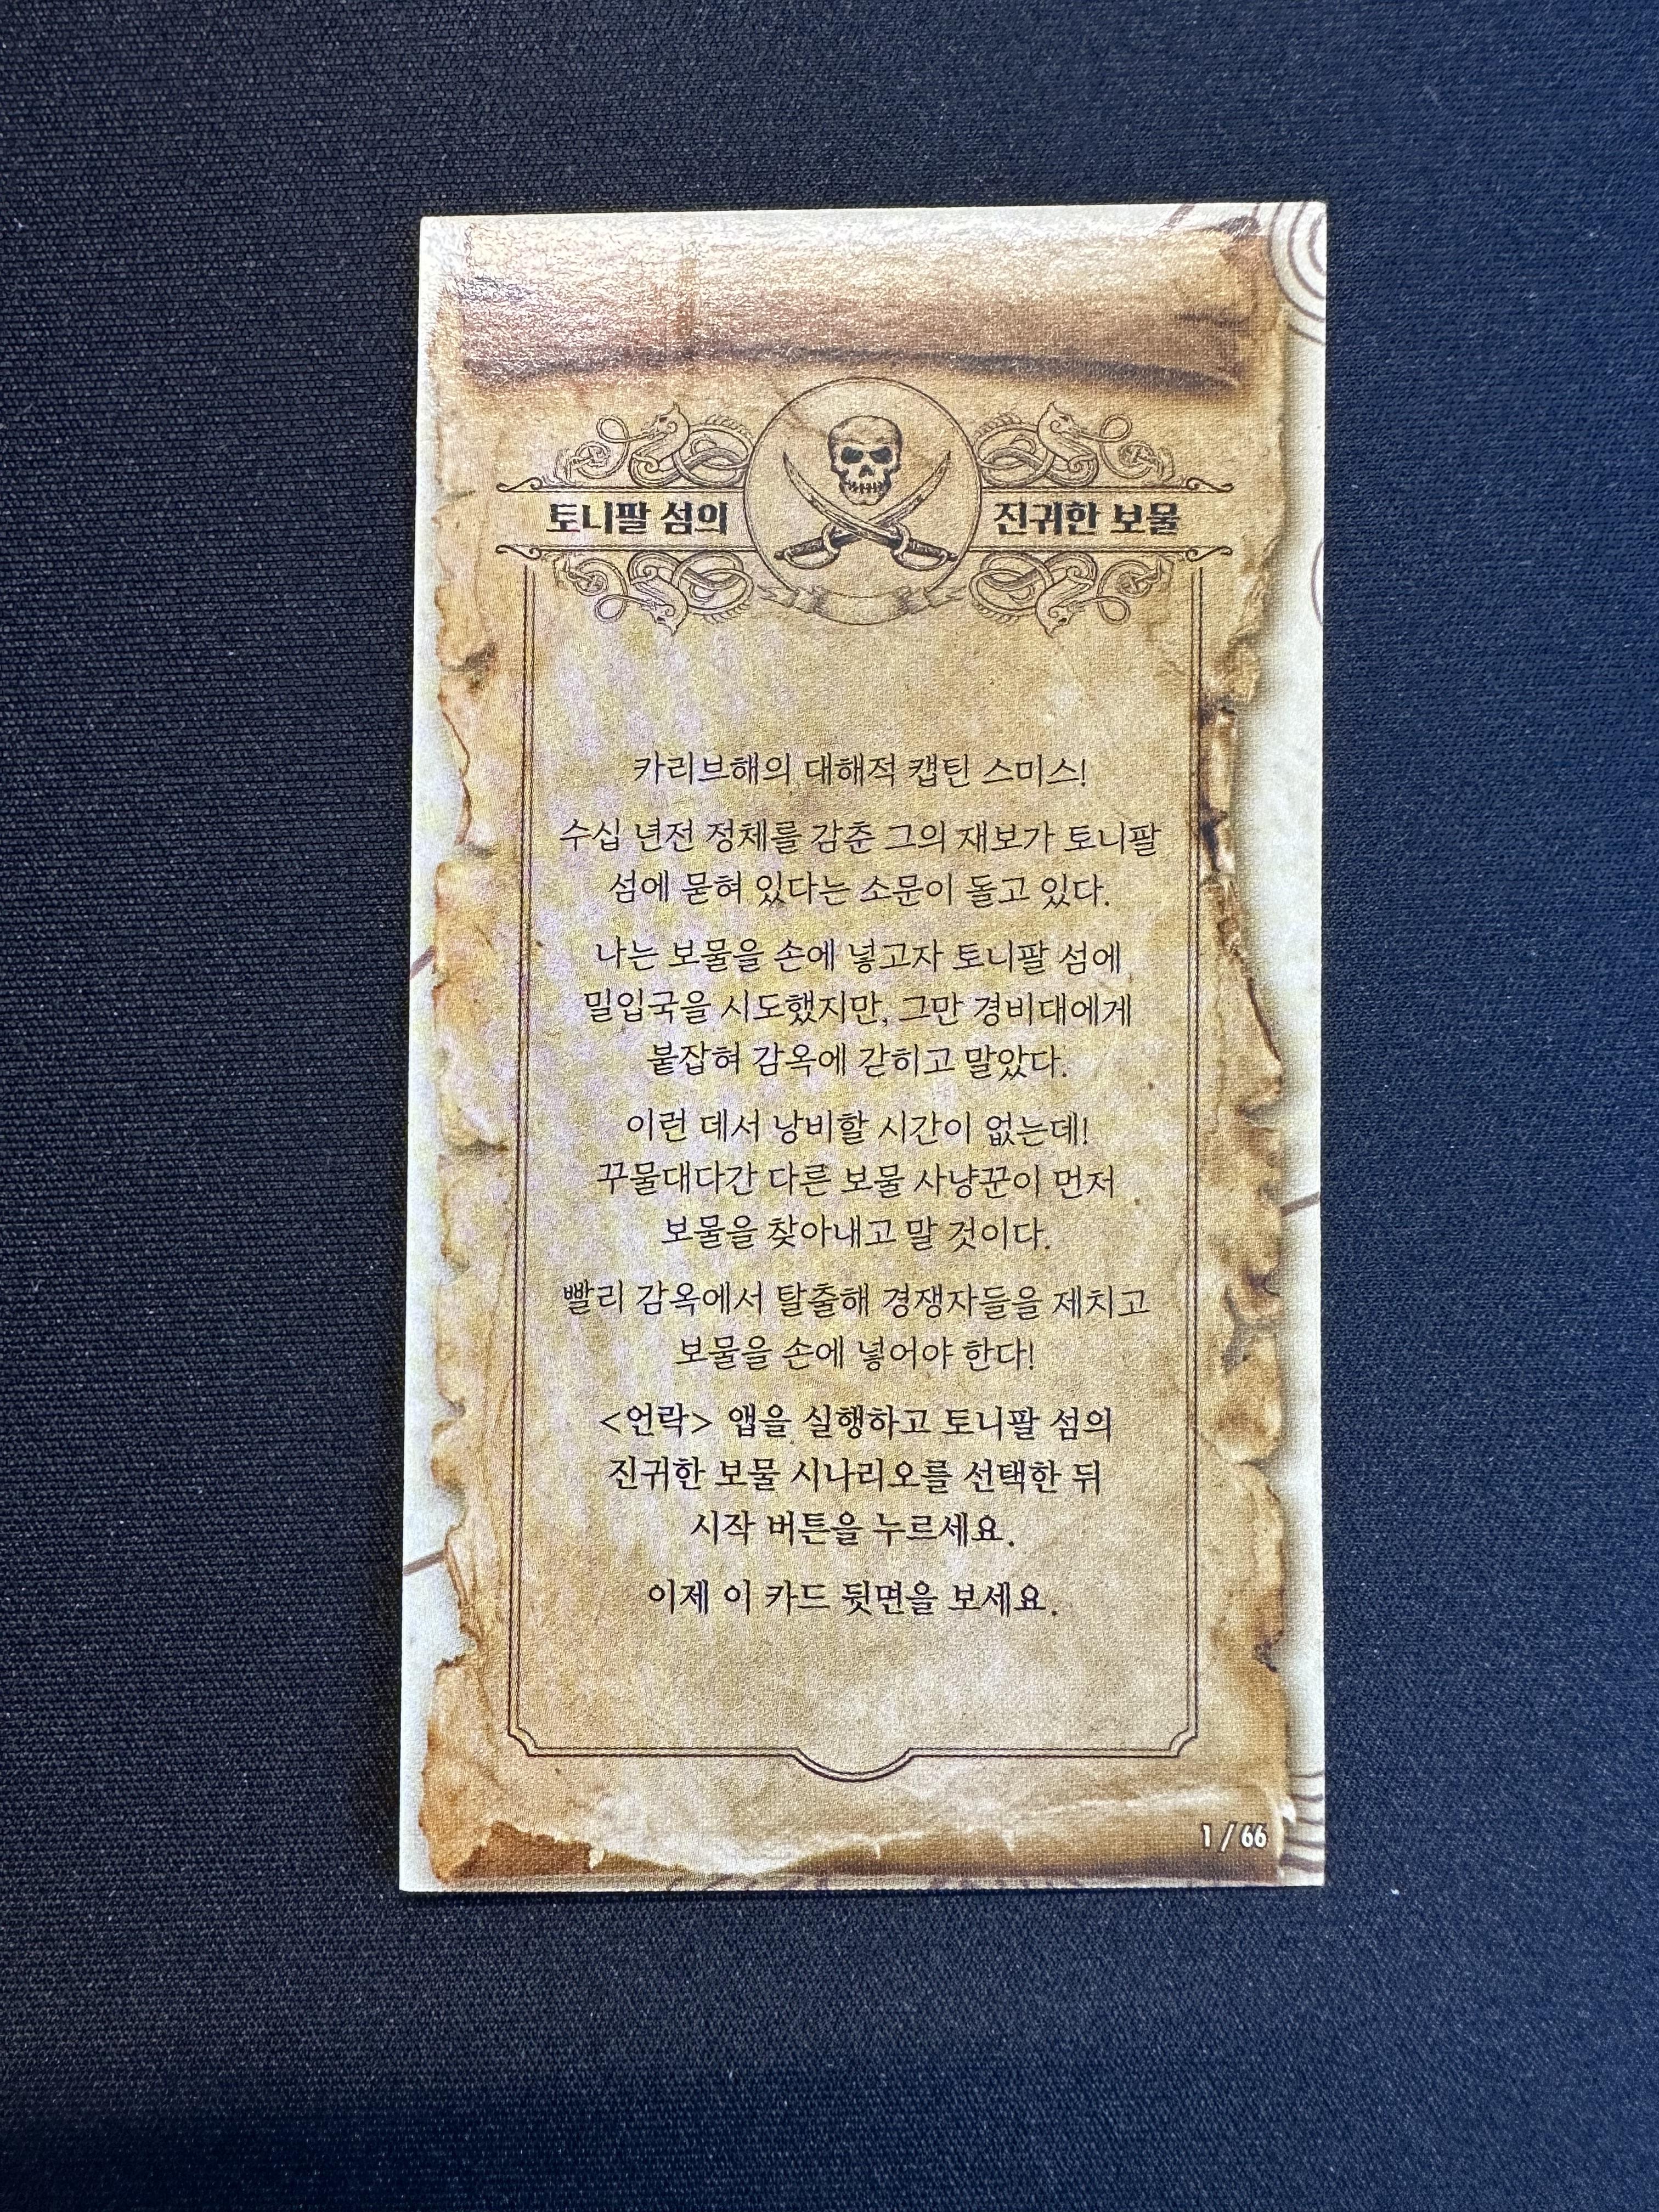 토니팔 섬의 진귀한 보물
카리브해의 대해적 캡틴 스미스!
수십 년전 정체를 감춘 그의 재보가 토니팔
섬에 묻혀 있다는 소문이 돌고 있다.
나는 보물을 손에 넣고자 토니팔 섬에
밀입국을 시도했지만, 그만 경비대에게
붙잡혀 감옥에 갇히고 말았다.
이런 데서 낭비할 시간이 없는데!
꾸물대다간 다른 보물 사냥꾼이 먼저
보물을 찾아내고 말 것이다.
빨리 감옥에서 탈출해 경쟁자들을 제치고
보물을 손에 넣어야 한다!
<언락> 앱을 실행하고 토니팔 섬의
진귀한 보물 시나리오를 선택한 뒤
시작 버튼을 누르세요.
이제 이 카드 뒷면을 보세요.
1 / 66